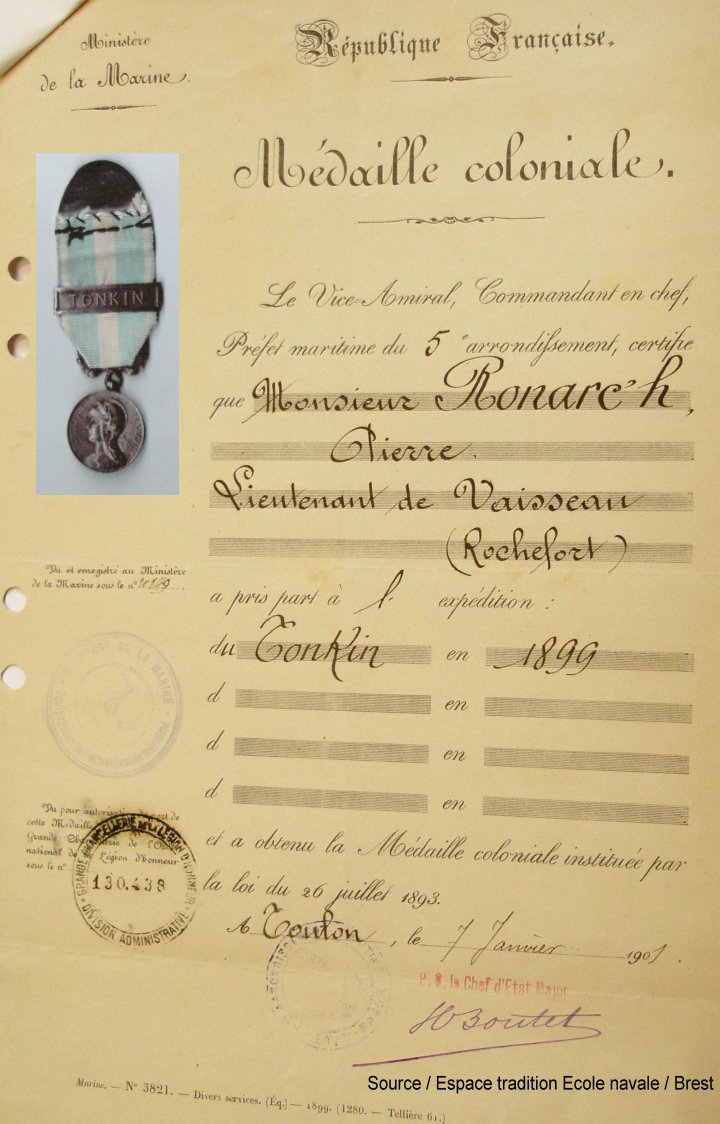 Ministère
de la Marine.
République Française.
Médaille coloniale.
TONKIN
Le Vice-Amiral, Commandant en chef,
Préfet maritime du 5e arrondissement, certifie
que Monsieur Ronarc'h,
Pierre.
Lieutenant de Vaisseau
(Rochefort)
Vu et enregistré au Ministère
de la Marine sous le nº
a pris part à l' expédition :
du Tonkin en 1899
d en
d en
d en
Vu pour autorisation de port de
cette Médaille
Grande Chancellerie de l'Ordre
national de la Légion d'honneur
sous le nº
GRANDE CHANCELLERIE DE LA LÉGION D'HONNEUR
130.438
DIVISION ADMINISTRATIVE
et a obtenu la Médaille coloniale instituée par
la loi du 26 juillet 1893.
A Toulon, le 7 Janvier 1901.
P. O. le Chef d'Etat Major
HBoutet
Marine. — Nº 3821. — Divers services. (Éq.) — 1899. (1280. — Tellière 61.)
Source / Espace tradition Ecole navale / Brest